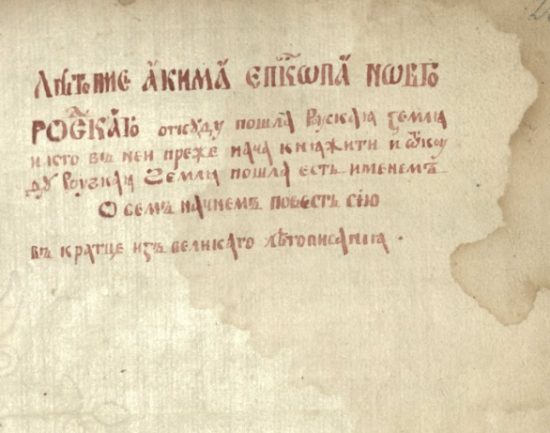 Лѣтопис Акима Епⷭ҇кѡпа Новго
роцкаго откуду пошла Руская земля
и кто въ неи преже нача княжити и ѿку
ду Руская земля пошла есть именемъ
О семъ начнемъ повесть сию
въ кратце изъ великаго лѣтописания .